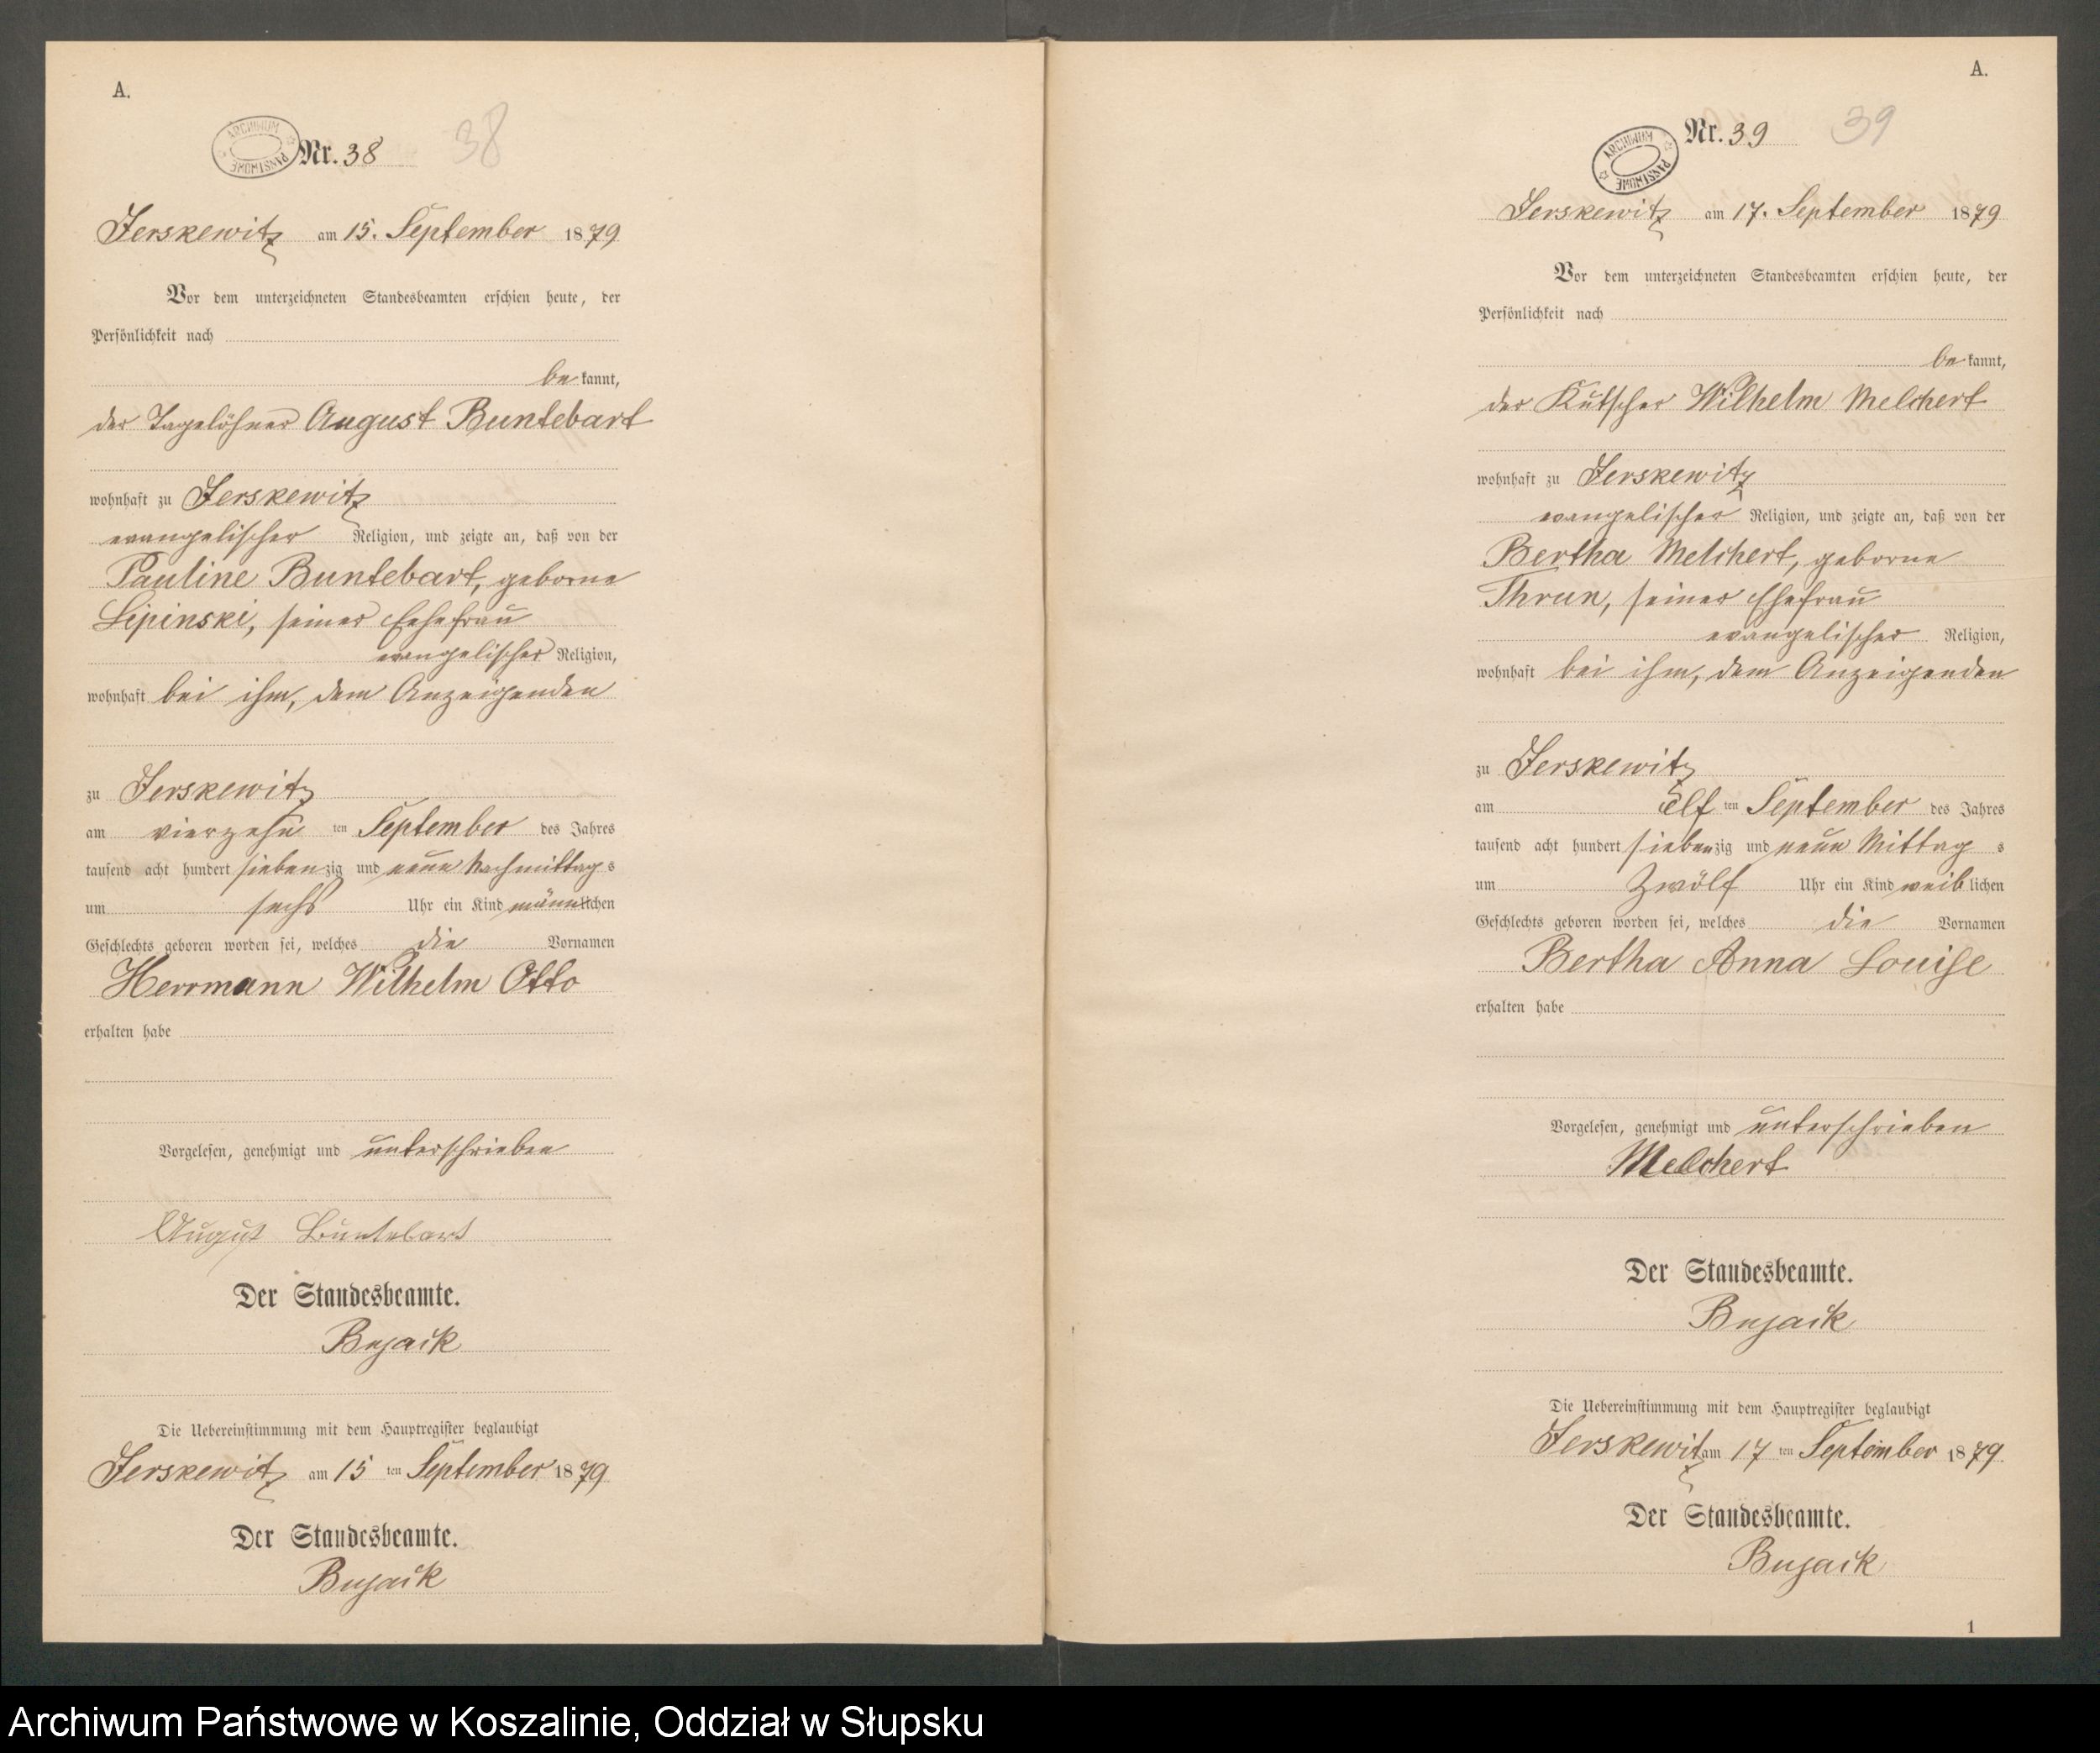 A.
ARCHIWUM PAŃSTWOWE
Nr. 38
38
Jerskewitz am 15. September 1879
Vor dem unterzeichneten Standesbeamten erschien heute, der
Persönlichkeit nach
be kannt,
der Tagelöhner August Buntebart
wohnhaft zu Jerskewitz
evangelischer Religion, und zeigte an, daß von der
Pauline Buntebart, geborne
Lipinski, seiner Eehefrau
evangelischer Religion,
wohnhaft bei ihm, dem Anzeigenden
zu Jerskewitz
am vierzehn ten September des Jahres
tausend acht hundert siebenzig und neun Nachmittag s
um sechs Uhr ein Kind männlichen
Geschlechts geboren worden sei, welches die Vornamen
Herrmann Wilhelm Otto
erhalten habe
Vorgelesen, genehmigt und unterschrieben
August Buntebart
Der Standesbeamte.
Bujack
Die Uebereinstimmung mit dem Hauptregister beglaubigt
Jerskewitz am 15 ten September 1879
Der Standesbeamte.
Bujack
A.
ARCHIWUM PAŃSTWOWE
Nr. 39
39
Jerskewitz am 17. September 1879
Vor dem unterzeichneten Standesbeamten erschien heute, der
Persönlichkeit nach
be kannt,
der Kutscher Wilhelm Melchert
wohnhaft zu Jerskewitz
evangelischer Religion, und zeigte an, daß von der
Bertha Melchert, geborne
Thrun, seiner Ehefrau
evangelischer Religion,
wohnhaft bei ihm, dem Anzeigenden
zu Jerskewitz
am Elf ten September des Jahres
tausend acht hundert siebenzig und neun Mittag s
um Zwölf Uhr ein Kind weib lichen
Geschlechts geboren worden sei, welches die Vornamen
Bertha Anna Louise
erhalten habe
Vorgelesen, genehmigt und unterschrieben
Melchert
Der Standesbeamte.
Bujack
Die Uebereinstimmung mit dem Hauptregister beglaubigt
Jerskewitz am 17 ten September 1879.
Der Standesbeamte.
Bujack
1
Archiwum Państwowe w Koszalinie, Oddział w Słupsku